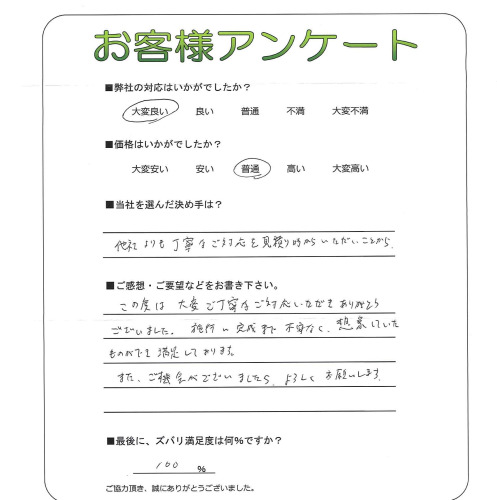 お客様アンケート
■弊社の対応はいかがでしたか？
大変良い 良い 普通 不満 大変不満
■価格はいかがでしたか？
大変安い 安い 普通 高い 大変高い
■当社を選んだ決め手は？
他社よりも丁寧なご対応を見積り時からいただいたことから。
■ご感想・ご要望などをお書き下さい。
この度は 大変ご丁寧なご対応いただき ありがとう
ございました。 完成まで 不安なく、想象していた
ものができ 満足しております。
また、ご機会がございましたら、よろしく お願いします。
■最後に、ズバリ満足度は何％ですか？
100 ％
ご協力頂き、誠にありがとうございました。